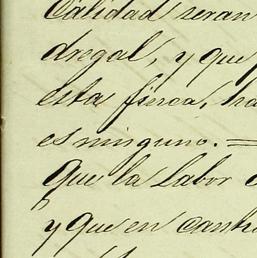 Calidad seran
dregal, y que
esta finca, ha
es ninguno. =
Que la Labor
y que en cantu